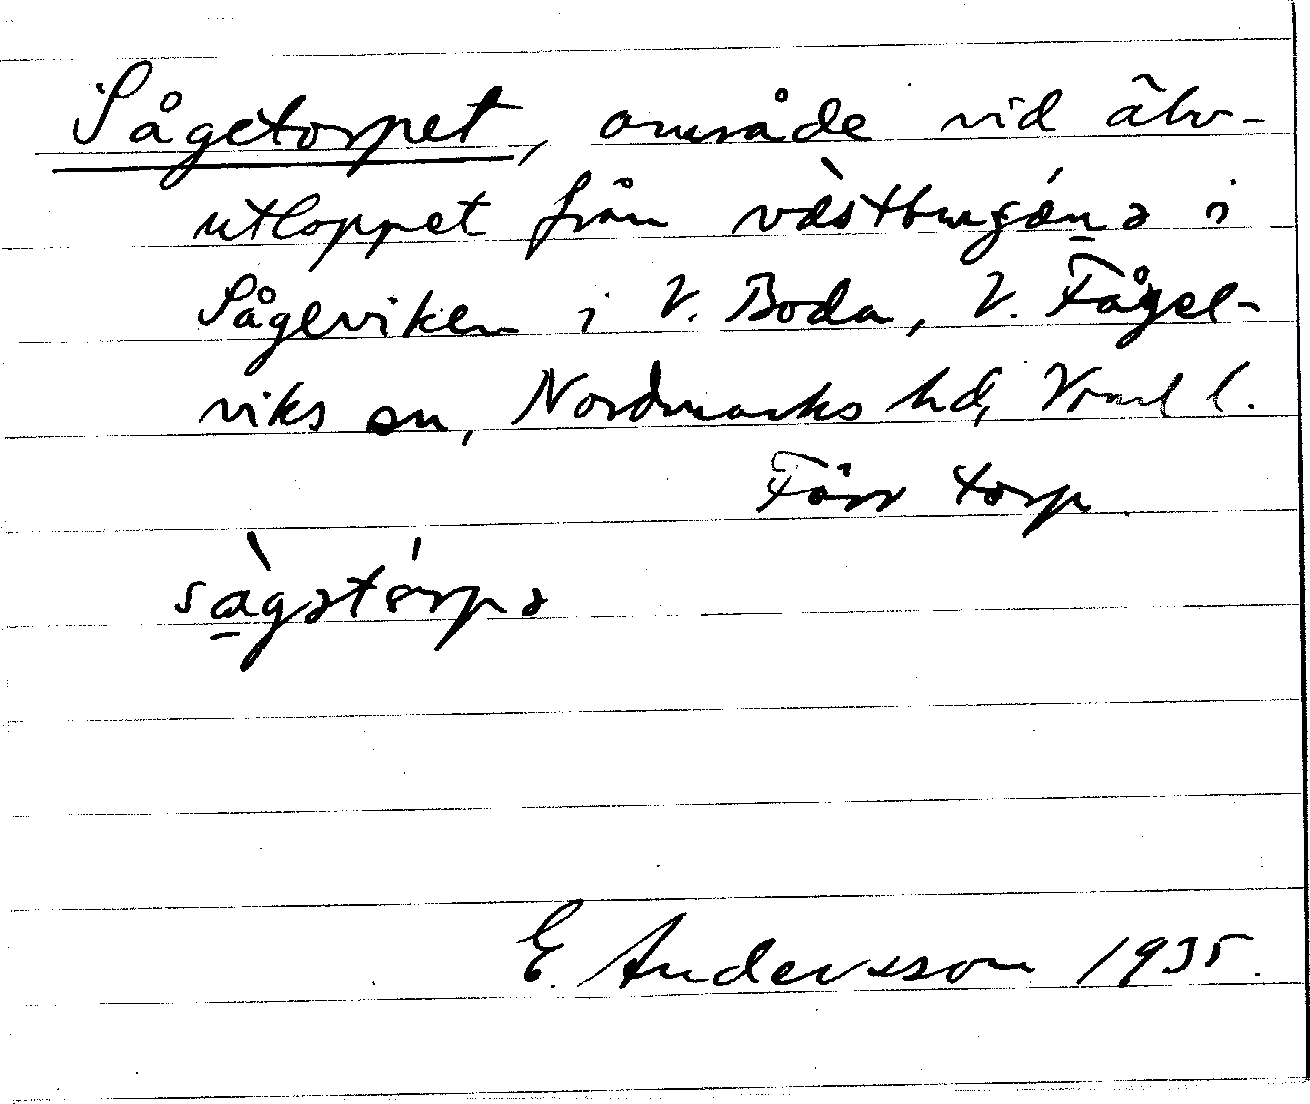 Sågetorpet, område vid älv-
utloppet från i
Sågeviken i V. Boda, V. Fågel-
viks sn, Nordmarks hd, Vrml l.
Förr torp.
sàgətórpə
E. Andersson 1935.